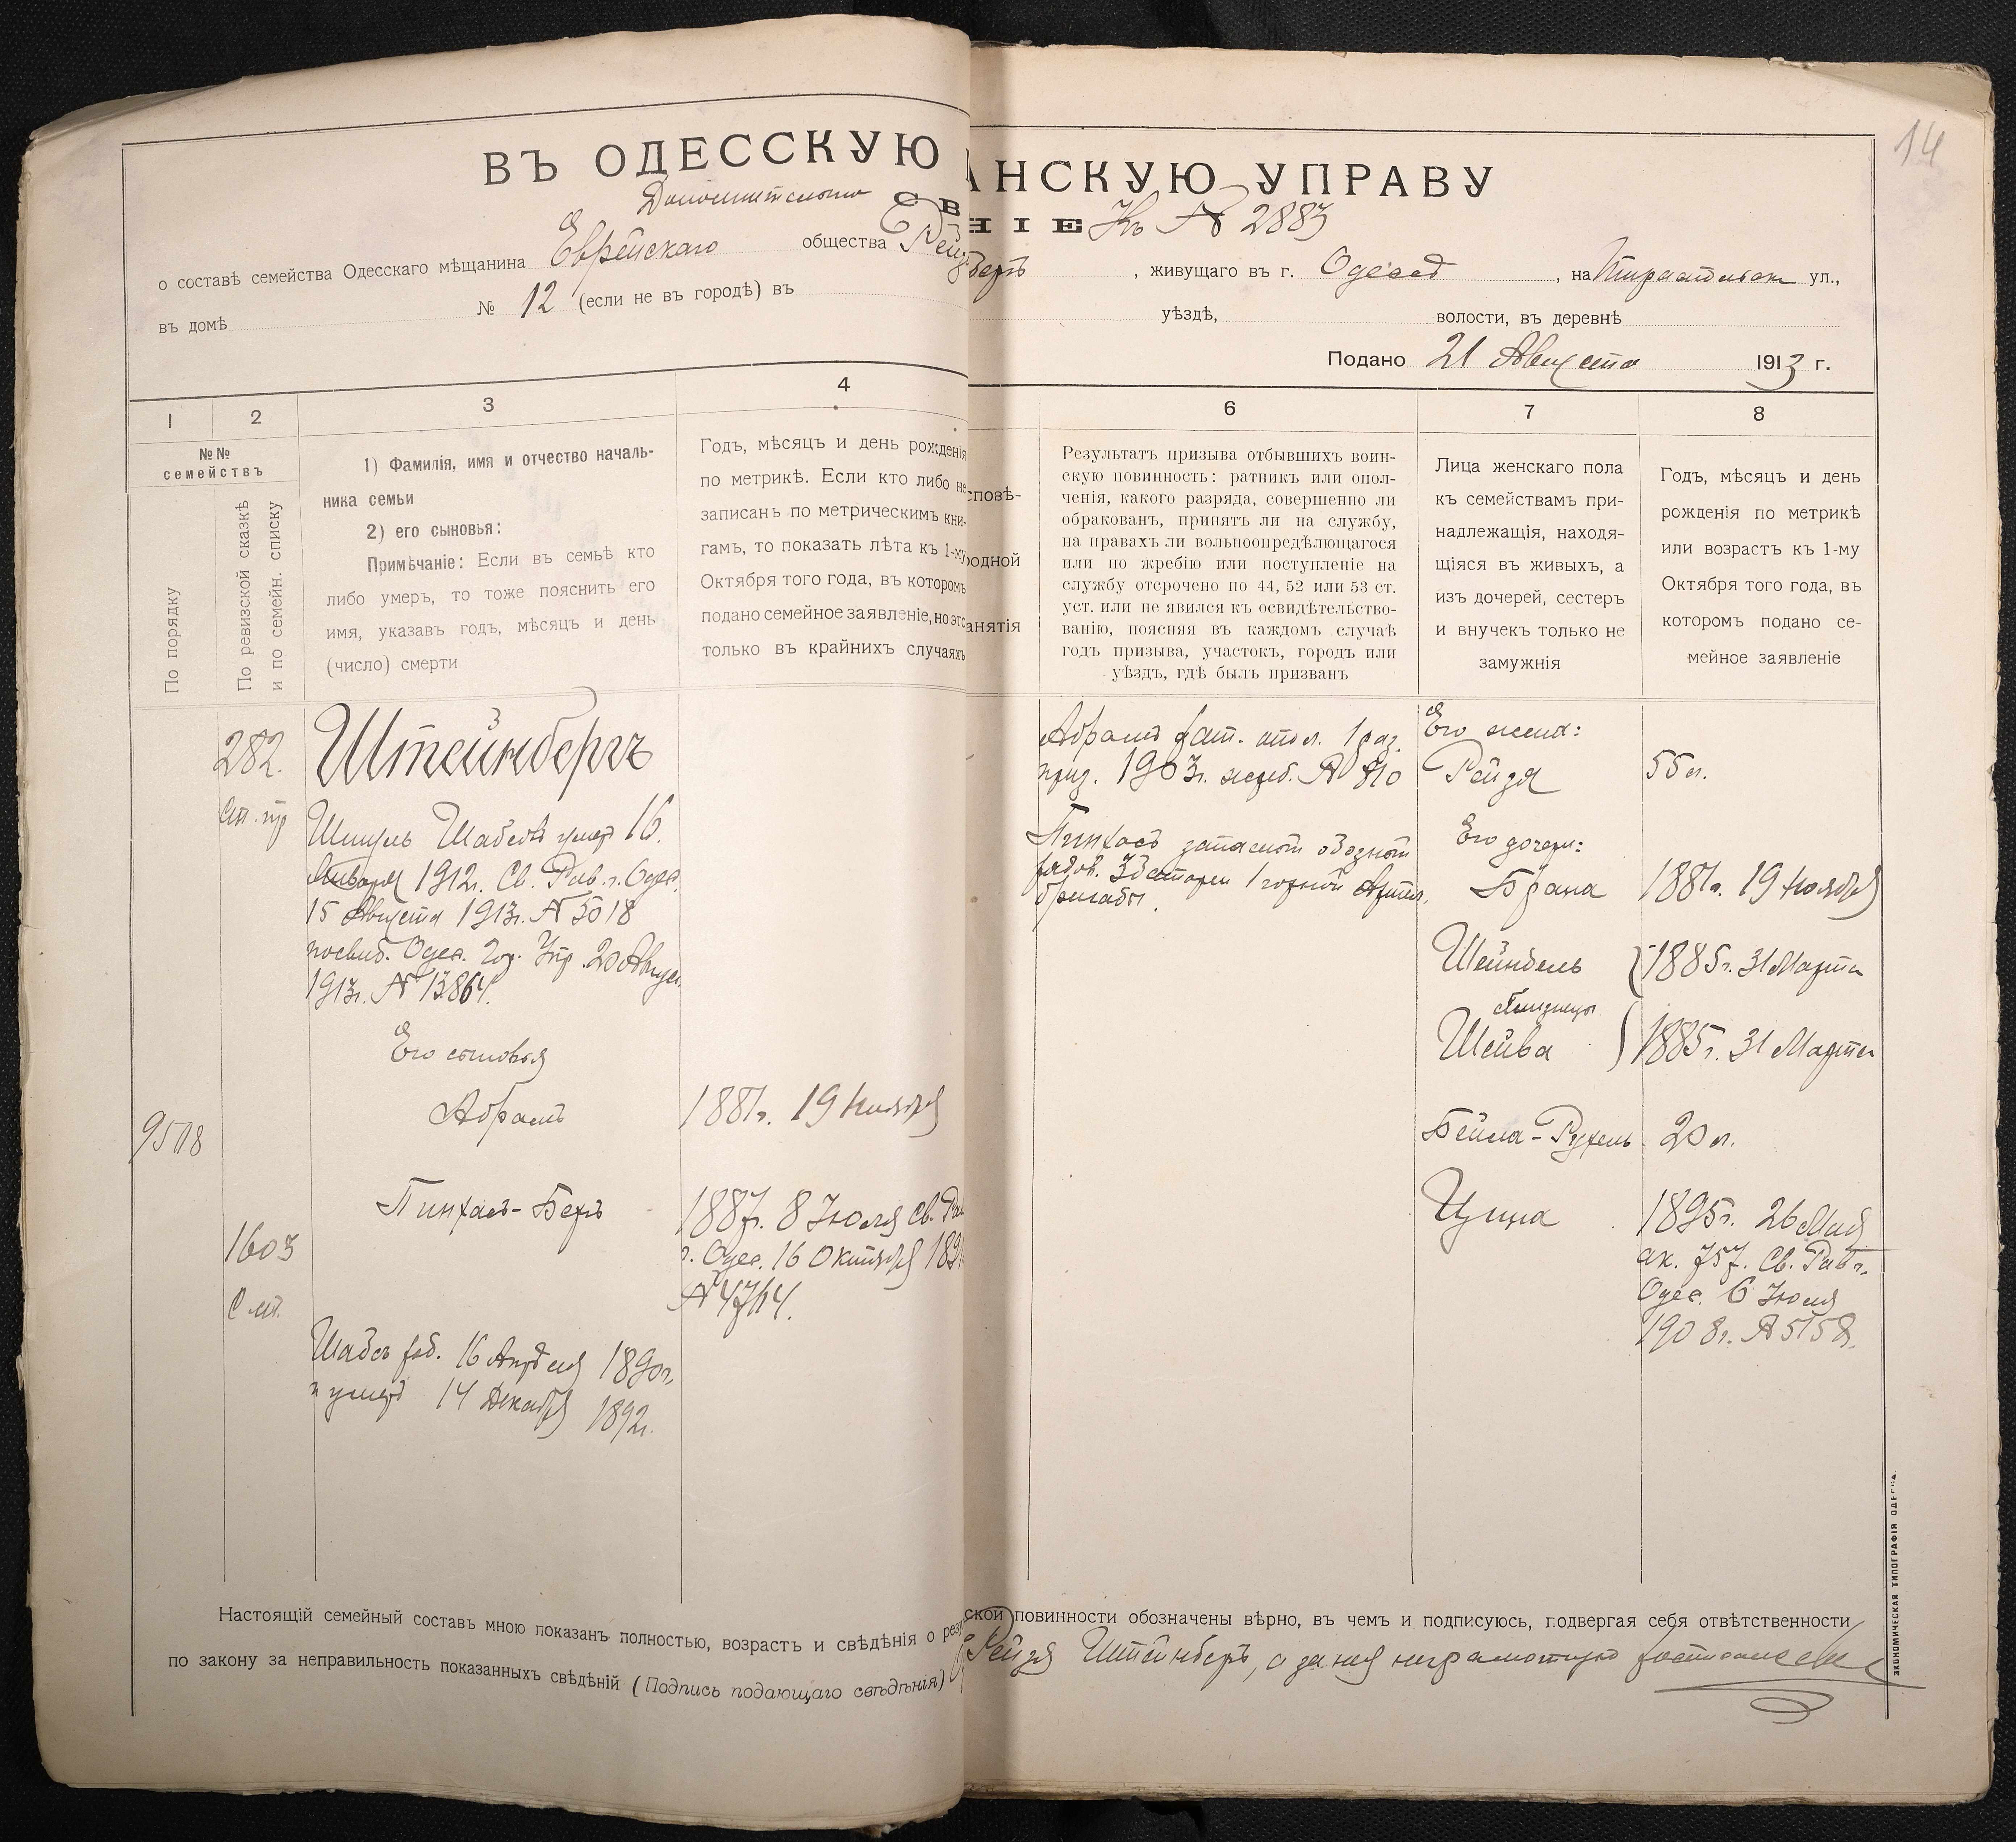 14
ВЪ ОДЕССКУЮ
АНСКУЮ УПРАВУ
Дополнительно
СВ
НІЕ Къ № 2883
о составѣ семейства Одесскаго мѣщанина Еврейскаго общества
, живущаго въ г. Одессѣ, на ул.,
въ домѣ № 12 (если не въ городѣ) въ
уѣздѣ, волости, въ деревнѣ
Подано 21 Августа 1913 г.
1
2
3
4
6
7
8
№№
семействъ
По порядку
По ревизской сказкѣ
и по семейн. списку
1) Фамилія, имя и отчество началь-
ника семьи
2) его сыновья:
Примѣчаніе: Если въ семьѣ кто
либо умеръ, то тоже пояснить его
имя, указавъ годъ, мѣсяцъ и день
(число) смерти
Годъ, мѣсяцъ и день рожденія
по метрикѣ. Если кто либо не
записанъ по метрическимъ кни-
гамъ, то показать лѣта къ 1-му
Октября того года, въ которомъ
подано семейное заявленіе, но это
только въ крайнихъ случаяхъ
сповѣ-
родной
анятія
Результатъ призыва отбывшихъ воин-
скую повинность: ратникъ или опол-
ченія, какого разряда, совершенно ли
обракованъ, принятъ ли на службу,
на правахъ ли вольноопредѣлющагося
или по жребію или поступленіе на
службу отсрочено по 44, 52 или 53 ст.
уст. или не явился къ освидѣтельство-
ванію, поясняя въ каждомъ случаѣ
годъ призыва, участокъ, городъ или
уѣздъ, гдѣ былъ призванъ
Лица женскаго пола
къ семействамъ при-
надлежащія, находя-
щіяся въ живыхъ, а
изъ дочерей, сестеръ
и внучекъ только не
замужнія
Годъ, мѣсяцъ и день
рожденія по метрикѣ
или возрастъ къ 1-му
Октября того года, въ
которомъ подано се-
мейное заявленіе
282.
Штейнбергъ
Шмуль Шабсовъ умеръ 16
Января 1912г. Св. Рав. г. Одес.
15 Августа 1913г. № 5018
посвид. Одес. Гор. Упр. 20 Август.
1913г. № 13864.
Его сыновья
Абрамъ 1881г. 19 Ноября
9508
Пинхасъ-Беръ 1887г. 8 Іюля Св. Рав
г. Одес. 16 Октября 189
№ 4764.
1603
Шабсъ род. 16 Апрѣля 1890г.
и умеръ 14 Декабря 1892г.
Абрамъ рат. опол. 1 раз.
приз. 1903г. жреб. № 810
Пинхасъ запасной обозной
рядов. 3 батареи 1 горной Артил.
бригады.
Его жена:
Рейзя 55 л.
Его дочери:
Брана 1881г. 19 Ноября
Шейндель 1885г. 31 Марта
близнецы
Шейва 1885г. 31 Марта
Бейла-Рухель 20 л.
Цупа 1895г. 26 Мая
ак. 757. Св. Рав. г.
Одес. 6 Іюля
1908г. № 5158.
Настоящій семейный составъ мною показанъ полностью, возрастъ и свѣдѣнія о резу
ской повинности обозначены вѣрно, въ чемъ и подписуюсь, подвергая себя отвѣтственности
по закону за неправильность показанныхъ свѣдѣній (Подпись подающаго свѣдѣнія)
Рейзя Штейнбергъ, а за нея неграмотную росписался
ЭКОНОМИЧЕСКАЯ ТИПОГРАФІЯ ОДЕССА.